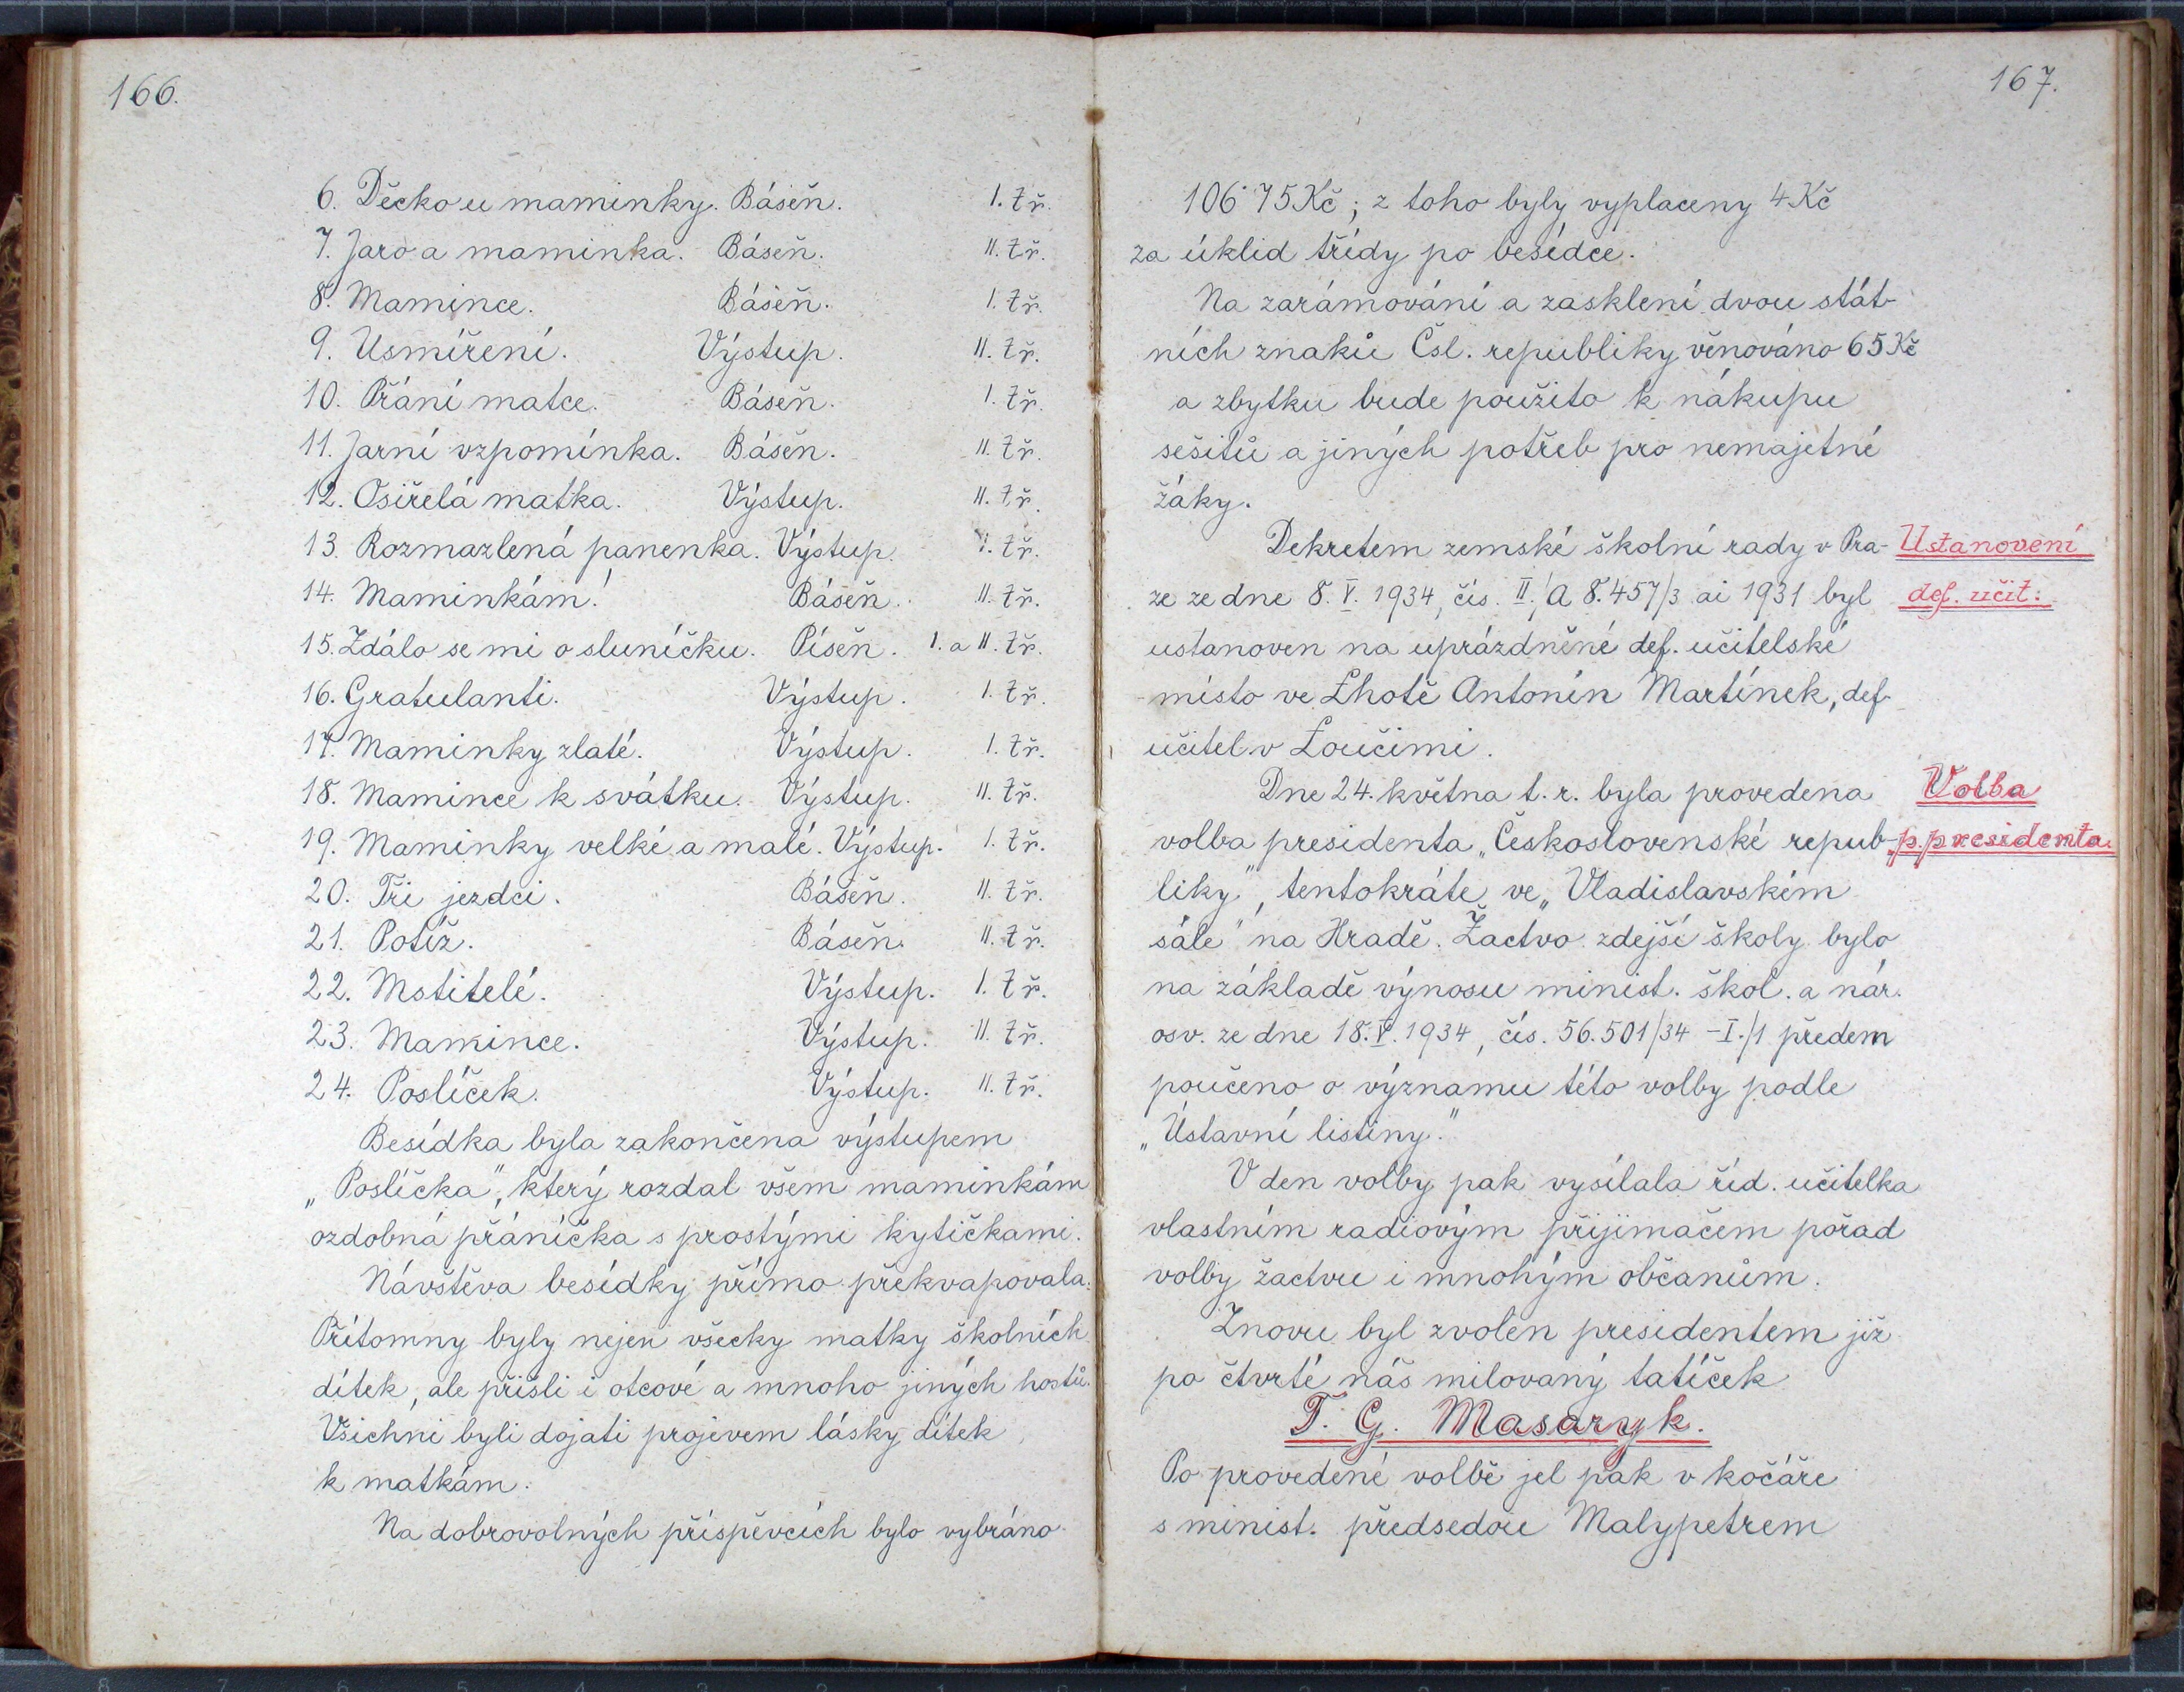 166.
6. Děcko u maminky. Báseň. I. tř.
7. Jaro a maminka. Báseň. II. tř.
8. Mamince. Báseň. I. tř.
9. Usmíření. Výstup. II. tř.
10. Přání matce. Báseň. I. tř.
11. Jarní vzpomínka. Báseň. II. tř.
12. Osiřelá matka. Výstup. II. tř.
13. Rozmazlená panenka. Výstup. I. tř.
14. Maminkám! Báseň. II. tř.
15. Zdálo se mi o sluníčku. Píseň. I. a II. tř.
16. Gratulanti. Výstup. I. tř.
17. Maminky zlaté. Výstup. I. tř.
18. Mamince k svátku. Výstup. II. tř.
19. Maminky velké a malé. Výstup. I. tř.
20. Tři jezdci. Báseň. II. tř.
21. Potíž. Báseň. II. tř.
22. Mstitelé. Výstup. I. tř.
23. Mamince. Výstup. II. tř.
24. Poslíček. Výstup. II. tř.
Besídka byla zakončena výstupem
„Poslíčka", který rozdal všem maminkám
ozdobná přáníčka s prostými kytičkami.
Návštěva besídky přímo překvapovala.
Přítomny byly nejen všecky matky školních
dítek, ale přišli i otcové a mnoho jiných hostů.
Všichni byli dojati projevem lásky dítek
k matkám.
Na dobrovolných příspěvcích bylo vybráno
167.
106˙75 Kč; z toho byly vyplaceny 4 Kč
za úklid třídy po besídce.
Na zarámování a zasklení dvou stát-
ních znaků Čsl. republiky věnováno 65 Kč
a zbytku bude použito k nákupu
sešitů a jiných potřeb pro nemajetné
žáky.
Dekretem zemské školní rady v Pra- Ustanovení
ze ze dne 8. V. 1934, čís. II./A 8.457/3 ai 1931 byl def. učit.
ustanoven na uprázdněné def. učitelské
místo ve Lhotě Antonín Martínek, def.
učitel v Loučimi.
Dne 24. května t. r. byla provedena Volba
volba presidenta „Československé repub- p. presidenta.
liky", tentokráte ve „Vladislavském
sále" na Hradě. Žactvo zdejší školy bylo
na základě výnosu minist. škol. a nár.
osv. ze dne 18. V. 1934, čís. 56.501/34 - I./1 předem
poučeno o významu této volby podle
„Ústavní listiny."
V den volby pak vysílala říd. učitelka
vlastním radiovým přijimačem pořad
volby žactvu i mnohým občanům.
Znovu byl zvolen presidentem již
po čtvrté náš milovaný tatíček
T. G. Masaryk.
Po provedené volbě jel pak v kočáře
s minist. předsedou Malypetrem